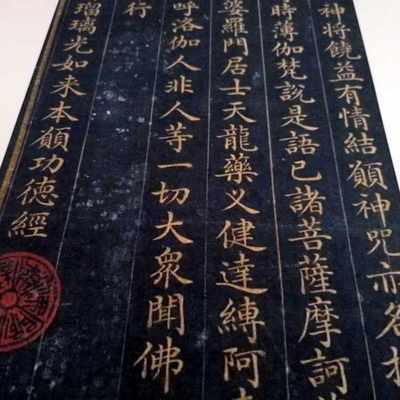 神将饒益有情結願神咒亦名
時薄伽梵說是語已諸菩薩摩訶
婆羅門居士天龍藥义健達縛阿
呼洛伽人非人等一切大衆聞佛
行
瑠璃光如来本願功德經